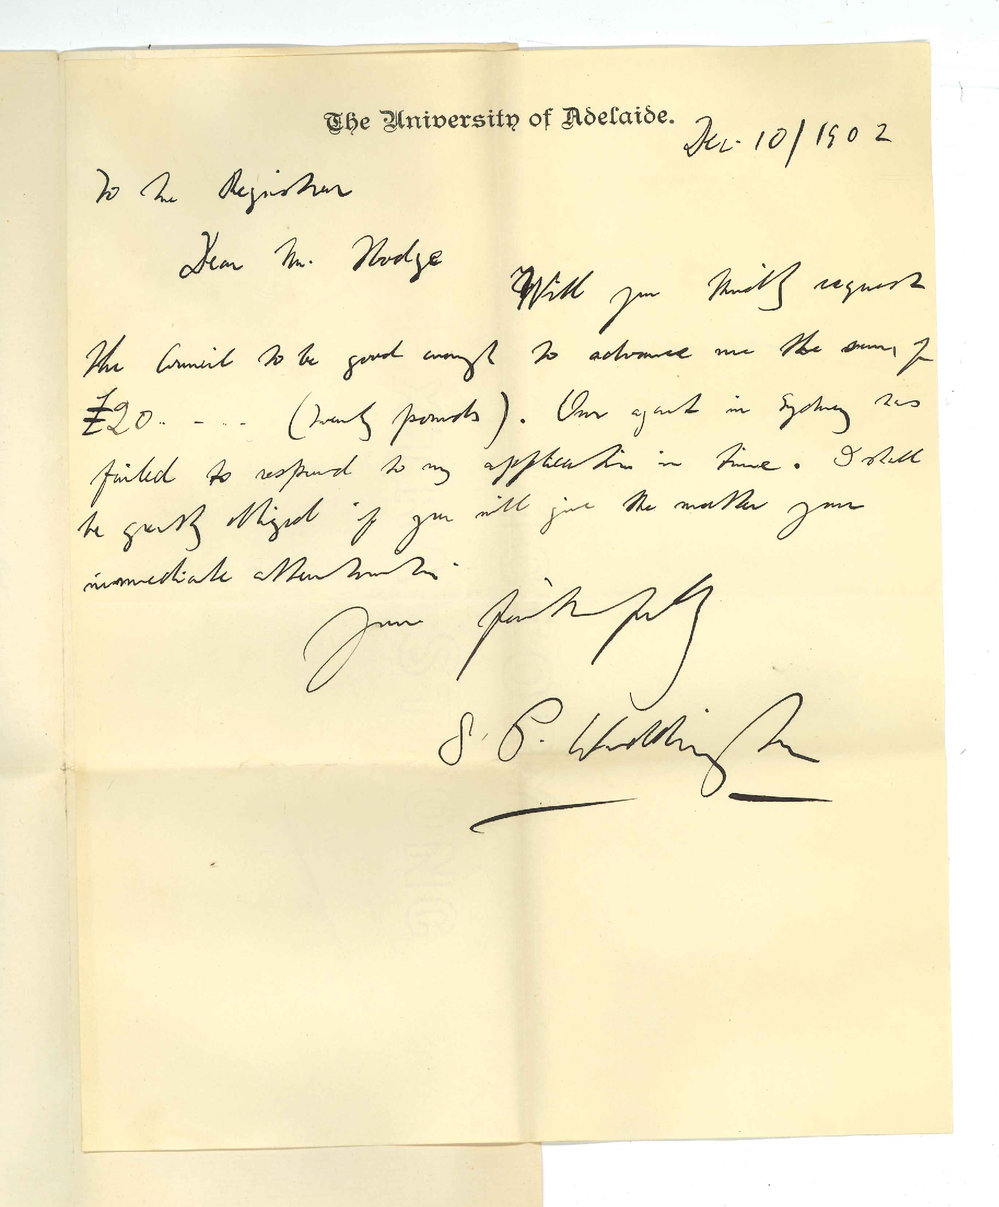 The University of Adelaide.
Dec. 10/1902
To the Registrar
Dear Mr. Hodge
Will you kindly request
the Council to be good enough to advance me the sum of
£20. - - . . (twenty pounds). Our agent in Sydney has
failed to respond to my application in time. I shall
be greatly obliged if you will give the matter your
immediate attention.
Yours faithfully
S. P. Waddington